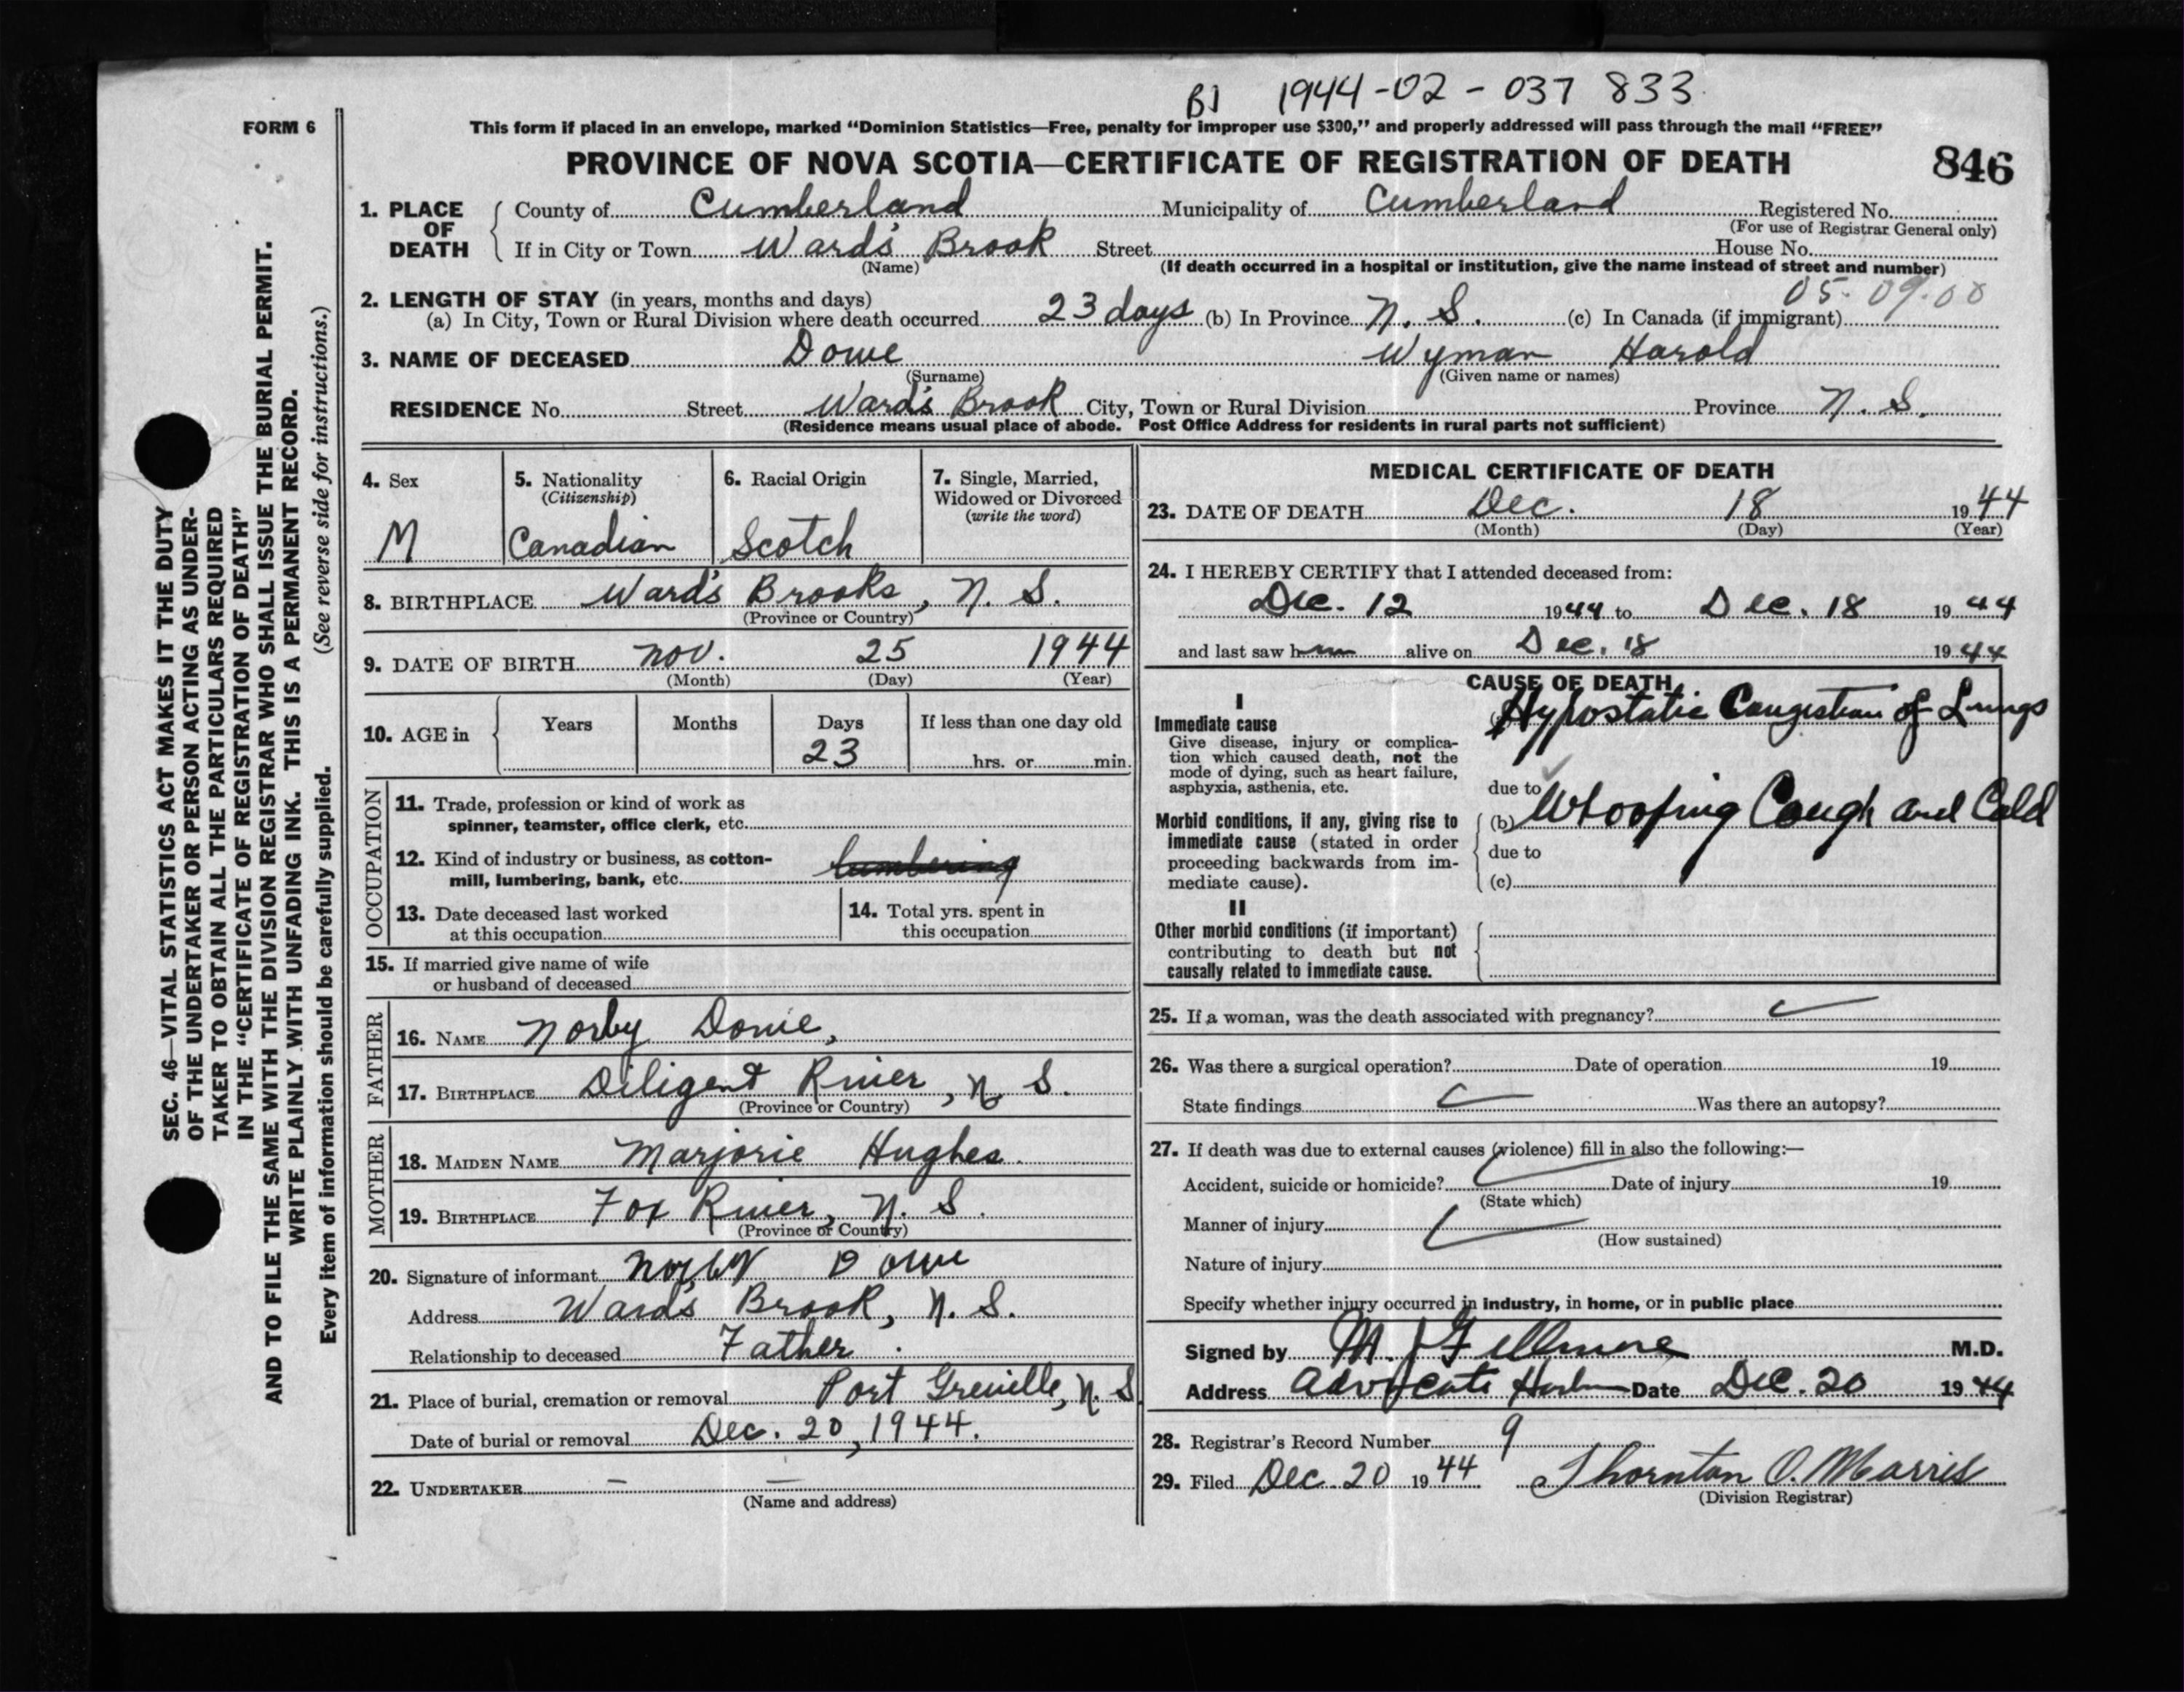 BJ 1944-02-037833
FORM 6
This form if placed in an envelope, marked "Dominion Statistics—Free, penalty for improper use $300," and properly addressed will pass through the mail "FREE"
PROVINCE OF NOVA SCOTIA—CERTIFICATE OF REGISTRATION OF DEATH 846
1. PLACE OF DEATH County of Cumberland Municipality of Cumberland Registered No.
(For use of Registrar General only)
If in City or Town Ward's Brook Street House No.
(Name) (If death occurred in a hospital or institution, give the name instead of street and number)
05-09-00
2. LENGTH OF STAY (in years, months and days)
(a) In City, Town or Rural Division where death occurred 23 days (b) In Province N. S. (c) In Canada (if immigrant)
3. NAME OF DECEASED Dowe Wyman Harold
(Surname) (Given name or names)
RESIDENCE No. Street Ward's Brook City, Town or Rural Division Province N. S.
(Residence means usual place of abode. Post Office Address for residents in rural parts not sufficient)
4. Sex M
5. Nationality (Citizenship) Canadian
6. Racial Origin Scotch
7. Single, Married, Widowed or Divorced (write the word)
8. BIRTHPLACE Ward's Brooks, N. S.
(Province or Country)
9. DATE OF BIRTH Nov. 25 1944
(Month) (Day) (Year)
10. AGE in Years Months Days If less than one day old
23 hrs. or min.
OCCUPATION
11. Trade, profession or kind of work as
spinner, teamster, office clerk, etc.
12. Kind of industry or business, as cotton-
mill, lumbering, bank, etc. lumbering
13. Date deceased last worked
at this occupation
14. Total yrs. spent in
this occupation
15. If married give name of wife
or husband of deceased
FATHER
16. NAME Norby Dowe,
17. BIRTHPLACE Diligent River, N S.
(Province or Country)
MOTHER
18. MAIDEN NAME Marjorie Hughes.
19. BIRTHPLACE Fox River, N. S.
(Province or Country)
20. Signature of informant Norby Dowe
Address Ward's Brook, N. S.
Relationship to deceased Father.
21. Place of burial, cremation or removal Port Greville, N. S
Date of burial or removal Dec. 20, 1944.
22. UNDERTAKER — —
(Name and address)
MEDICAL CERTIFICATE OF DEATH
23. DATE OF DEATH Dec. 18 1944
(Month) (Day) (Year)
24. I HEREBY CERTIFY that I attended deceased from:
Dec. 12 1944 to Dec. 18 1944
and last saw him alive on Dec. 18 1944
CAUSE OF DEATH
I
Immediate cause
Give disease, injury or complica-
tion which caused death, not the
mode of dying, such as heart failure,
asphyxia, asthenia, etc.
Hypostatic Congestion of Lungs
due to
Morbid conditions, if any, giving rise to
immediate cause (stated in order
proceeding backwards from im-
mediate cause).
(b) Whooping Cough and Cold
due to
(c)
II
Other morbid conditions (if important)
contributing to death but not
causally related to immediate cause.
25. If a woman, was the death associated with pregnancy?
26. Was there a surgical operation? Date of operation 19
State findings Was there an autopsy?
27. If death was due to external causes (violence) fill in also the following:—
Accident, suicide or homicide? Date of injury 19
(State which)
Manner of injury
(How sustained)
Nature of injury
Specify whether injury occurred in industry, in home, or in public place
Signed by M. J Fillmore M.D.
Address Advocate Harbor Date Dec. 20 1944
28. Registrar's Record Number 9
29. Filed Dec. 20 1944 Thornton O. Morris
(Division Registrar)
SEC. 46—VITAL STATISTICS ACT MAKES IT THE DUTY
OF THE UNDERTAKER OR PERSON ACTING AS UNDER-
TAKER TO OBTAIN ALL THE PARTICULARS REQUIRED
IN THE "CERTIFICATE OF REGISTRATION OF DEATH"
AND TO FILE THE SAME WITH THE DIVISION REGISTRAR WHO SHALL ISSUE THE BURIAL PERMIT.
WRITE PLAINLY WITH UNFADING INK. THIS IS A PERMANENT RECORD.
Every item of information should be carefully supplied. (See reverse side for instructions.)